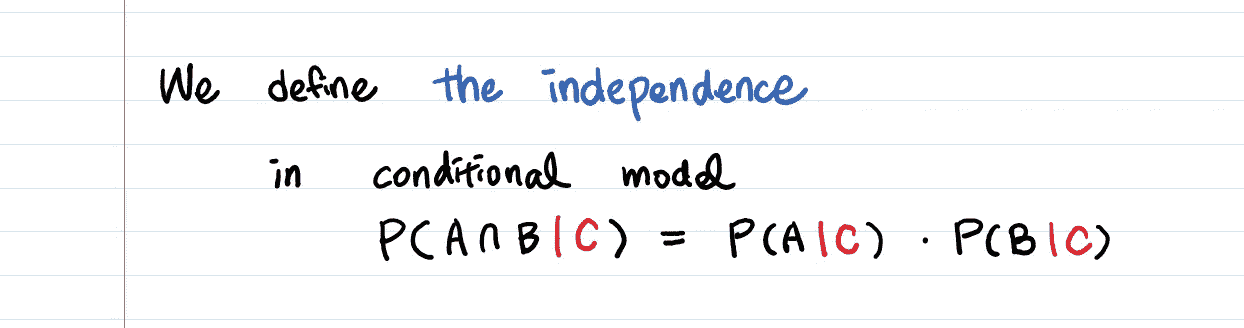 We define the independence
in conditional model
P(A∩B|C) = P(A|C) · P(B|C)